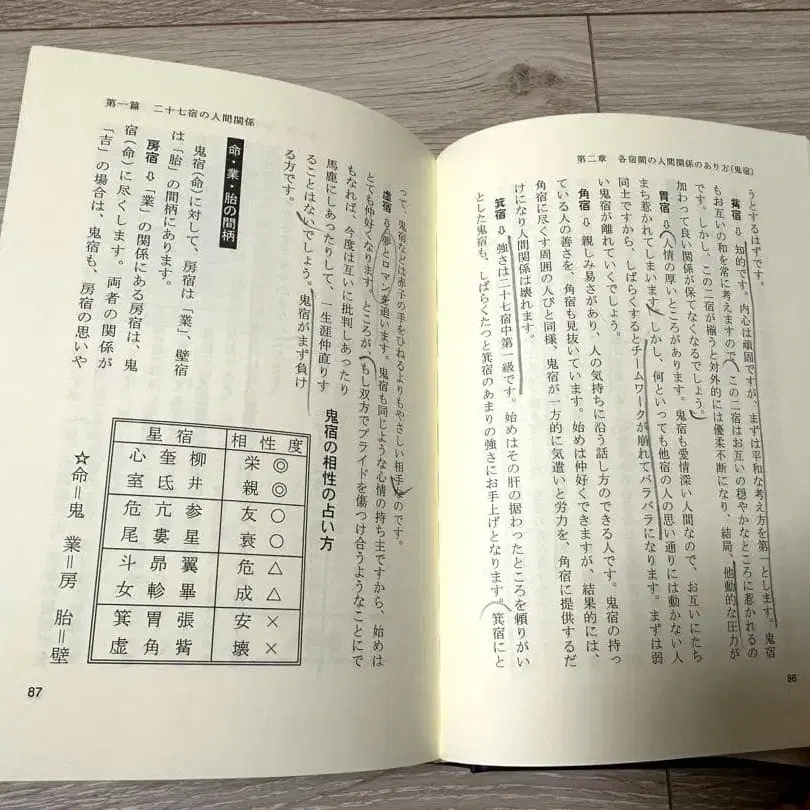 第二章　各宿間の人間関係のあり方(鬼宿)
うとするはずです。
觜宿⇨知的です。内心は頑固ですが、まずは平和な考え方を第一とします。鬼宿
もお互いの和を常に考えますので、この二宿はお互いの穏やかなところに惹かれるの
です。しかし、この二宿が揃うと対外的には優柔不断になり、結局、他動的な圧力が
加わって良い関係が保てなくなるでしょう。
胃宿⇨人情の厚いところがあります。鬼宿も愛情深い人間なので、お互いにたち
まち惹かれてしまいます。しかし、何といっても他宿の人の思い通りには動かない人
同士ですから、しばらくするとチームワークが崩れてバラバラになります。まずは弱
い鬼宿が離れていくでしょう。
角宿⇨親しみ易さがあり、人の気持ちに沿う話し方のできる人です。鬼宿の持っ
ている人の善さを、角宿も見抜いています。始めは仲好くできますが、結果的には、
角宿に尽くす周囲の人びと同様、鬼宿が一方的に気遣いと労力を、角宿に提供するだ
けになり人間関係は壊れます。
箕宿⇨強さは二十七宿中第一級です。始めはその肝の据わったところを頼りがい
とした鬼宿も、しばらくたつと箕宿のあまりの強さにお手上げとなります。箕宿にと
86
第一篇　二十七宿の人間関係
って、鬼宿などは赤子の手をひねるよりもやさしい相手なのです。
虚宿⇨夢とロマンを追います。鬼宿も同じような心情の持ち主ですから、始めは
とても仲好くなります。ところが、もし双方でプライドを傷つけ合うようなことにで
もなれば、今度は互いに批判しあったり
馬鹿にしあったりして、一生涯仲直りす
ることはないでしょう。鬼宿がまず負け
る方です。
命・業・胎の間柄
鬼宿(命)に対して、房宿は「業」、壁宿
は「胎」の間柄にあります。
房宿⇨「業」の関係にある房宿は、鬼
宿(命)に尽くします。両者の関係が
「吉」の場合は、鬼宿も、房宿の思いや
鬼宿の相性の占い方
星宿　相性度
心 奎 柳　栄 ◎
室 氐 井　親 ◎
危 亢 参　友 ○
尾 婁 星　衰 ○
斗 昴 翼　危 △
女 軫 畢　成 △
箕 胃 張　安 ×
虚 角 觜　壊 ×
☆命=鬼　業=房　胎=壁
87